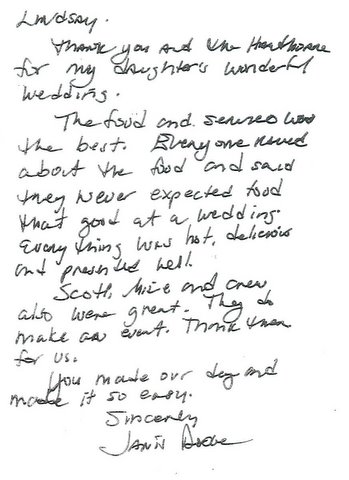 Lindsay.
Thank you and the Hawthorne
for my daughter's wonderful
wedding.
The food and service was
the best. Everyone raved
about the food and said
they never expected food
that good at a wedding.
Everything was hot, delicious
and presented well.
Scott, Mike and crew
also were great. They do
make an event. Thank them
for us.
You made our day and
made it so easy.
Sincerely
Janis